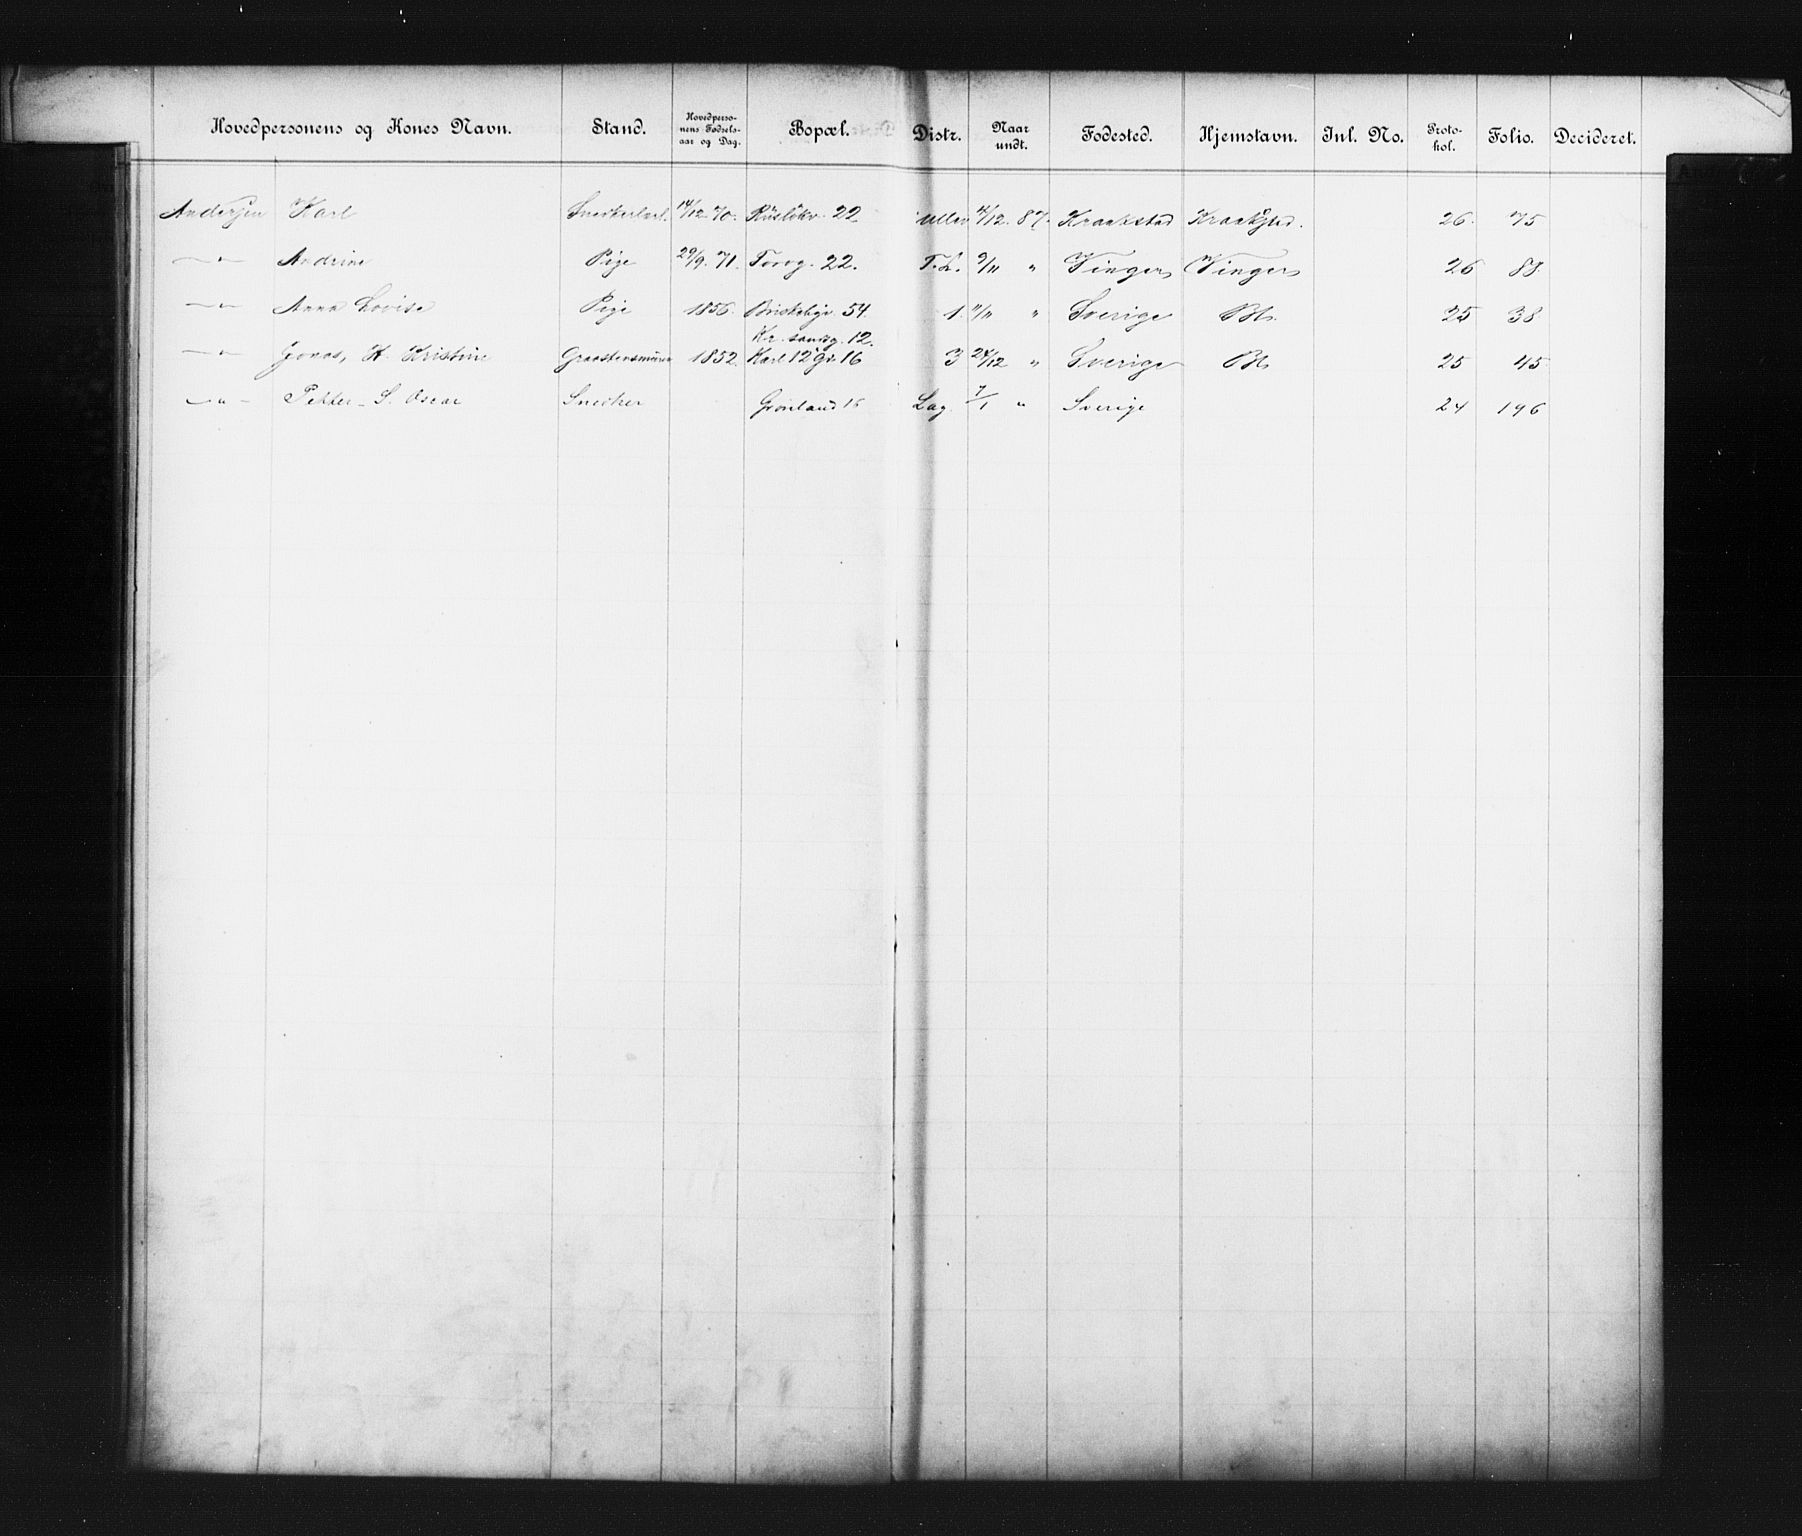 Hovedpersonens og Kones Navn. Stand. Hovedpersonens Fødselsaar og Dag. Bopæl. Distr. Naar undt. Fødested. Hjemstavn. Inl. No. Protokol. Folio. Decideret.
Andersen Karl Snedkerlærl. 14/12. 70. Rüsløkv. 22 Uller 4/12. 87. Kraakstad Kraakstad. 26. 75
—"— Andrine Pige 29/9. 71. Torvg. 22. T.L. 9/11 " Vinger Vinger 26 88
—"— Anna Lovise Pige 1856. Briskebyv. 54. 1. 11/11 " Sverige 25 38
Kr. sandg. 12.
—"— Jonas, H. Kristine Graastensmürer 1852. Karl 12 Gd. 16 3 24/12 " Sverige 25 45
—"— Petter - S. Oscar Snedker Grønland 16 Lag. 7/1 " Sverige 24 196